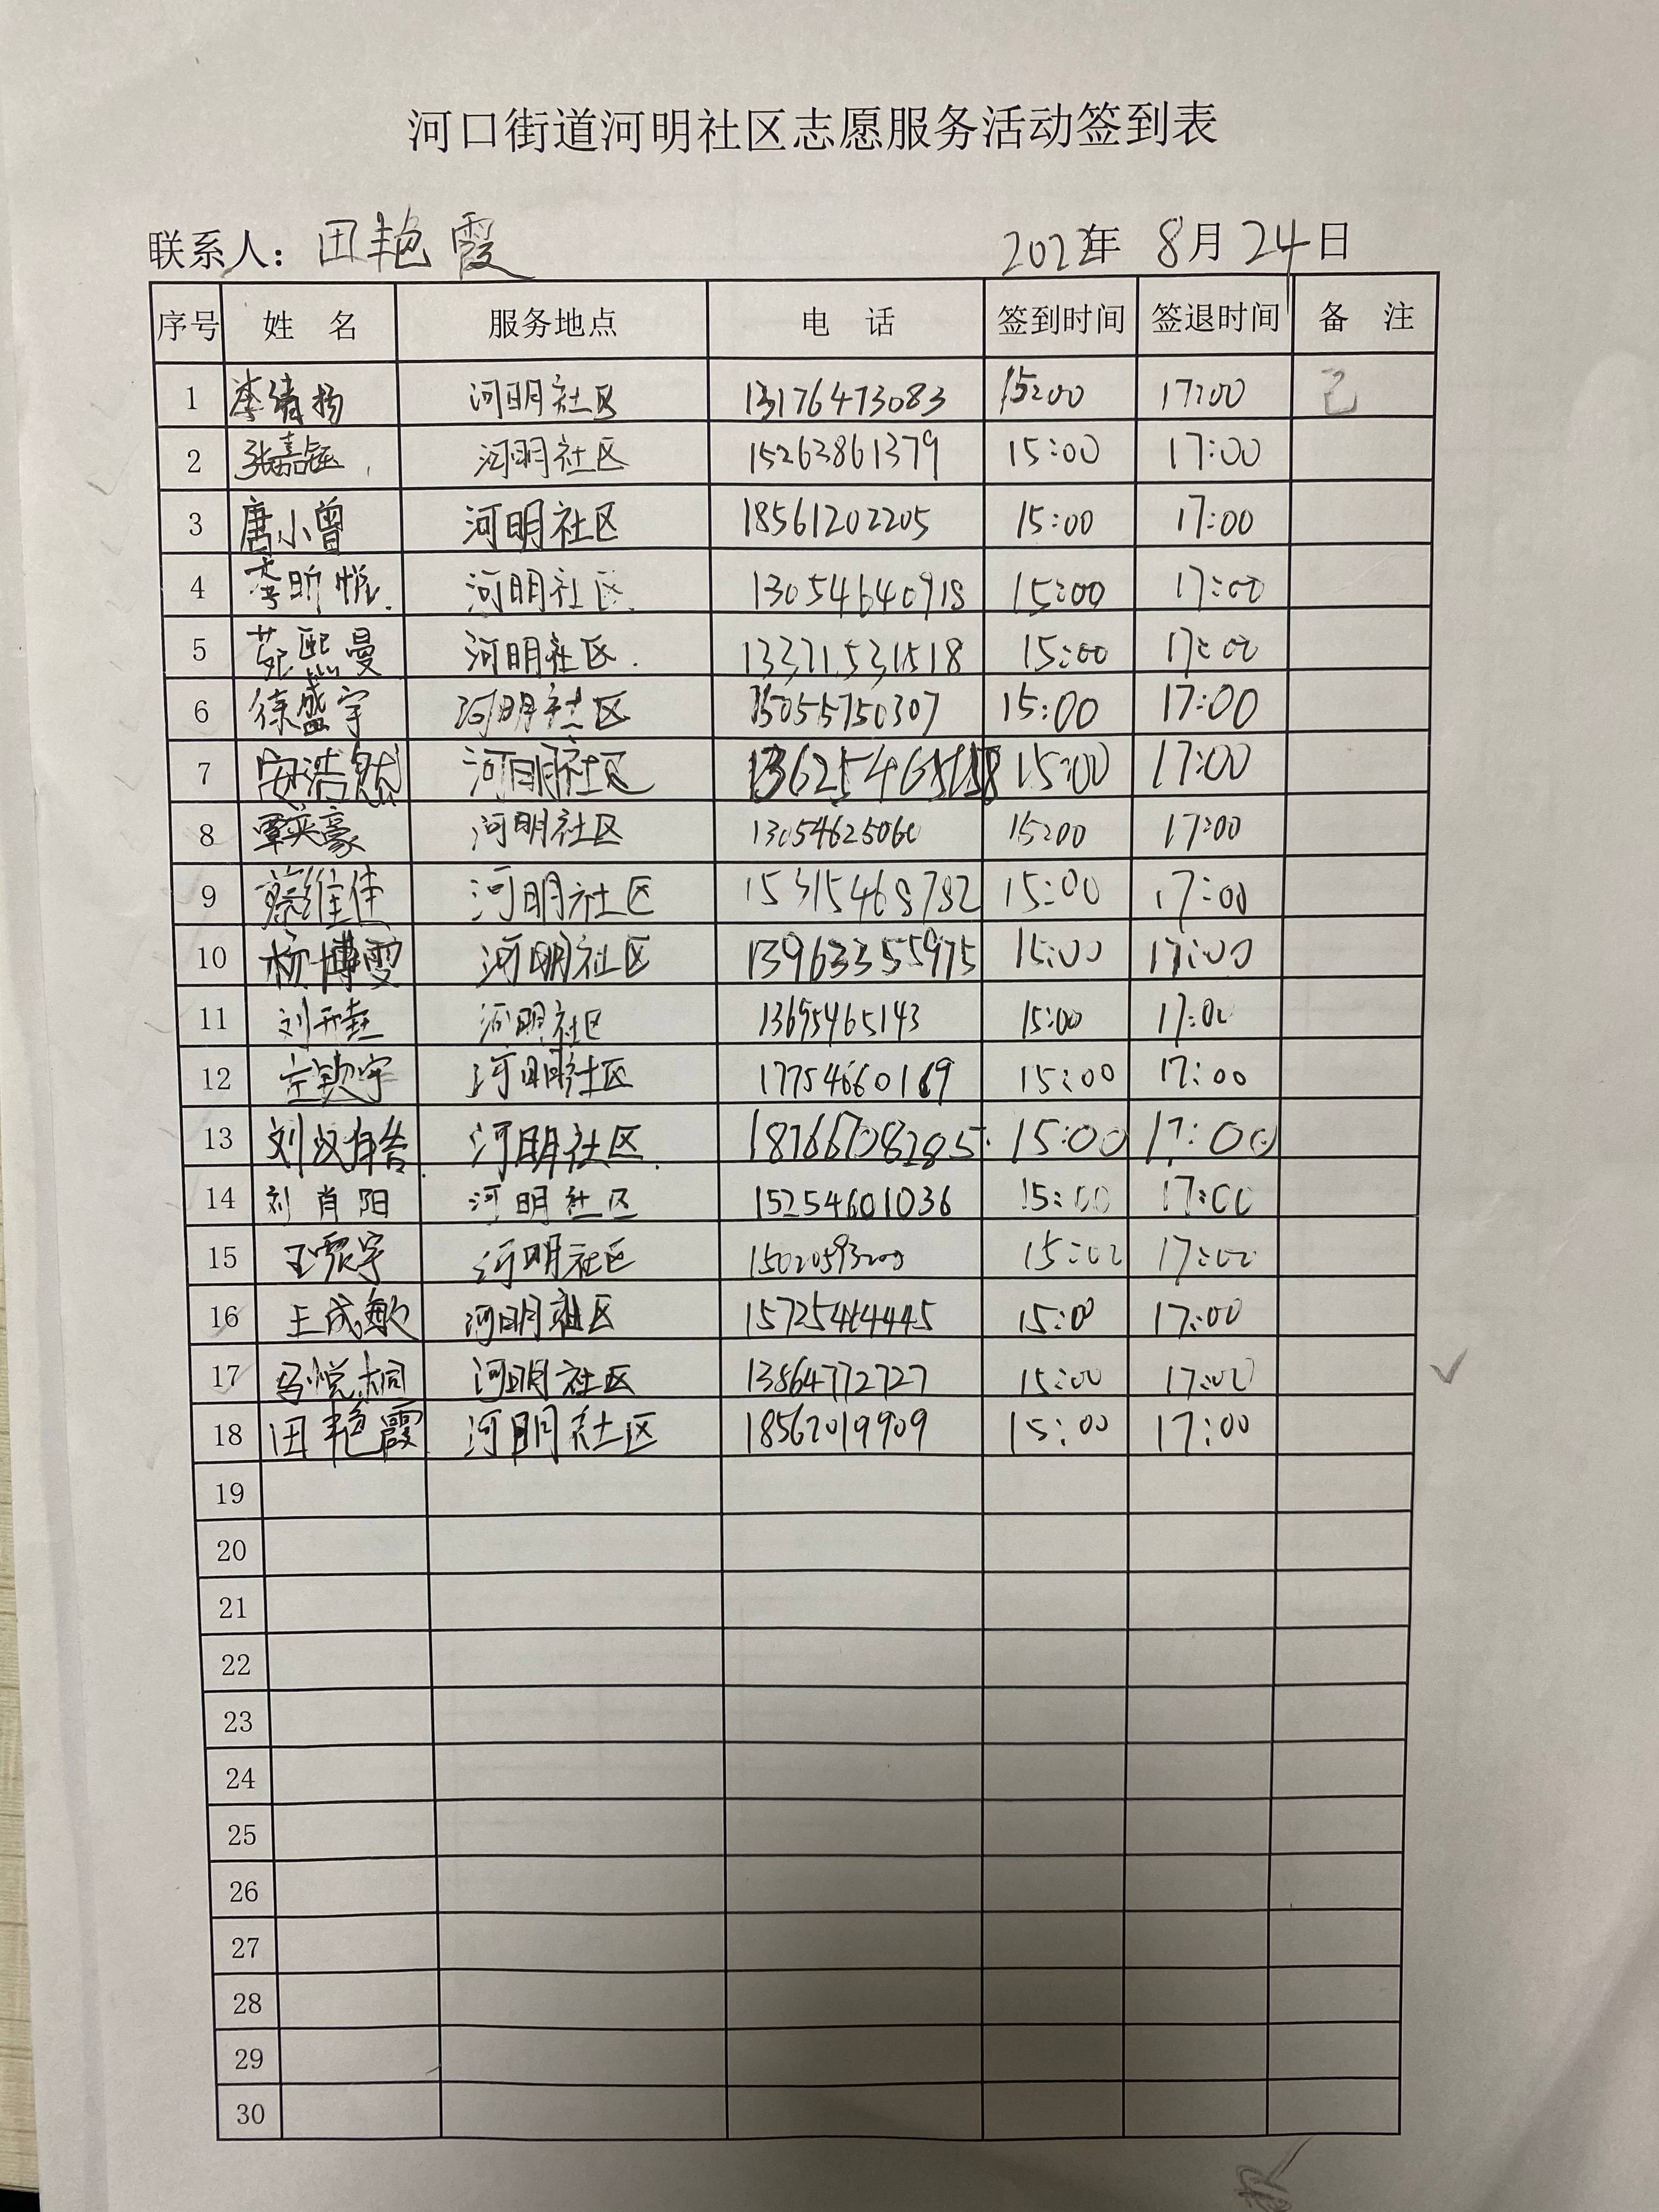 河口街道河明社区志愿服务活动签到表
联系人：田艳霞 2022年 8月24日
序号 姓 名 服务地点 电 话 签到时间 签退时间 备 注
1 李倩扬 河明社区 13176473083 15:00 17:00 已
2 张嘉钰 河明社区 15263861379 15:00 17:00
3 唐小曾 河明社区 18561202205 15:00 17:00
4 李昕悦 河明社区 13054640918 15:00 17:00
5 苑熙曼 河明社区 13371531518 15:00 17:00
6 徐盛宇 河明社区 15055750307 15:00 17:00
7 安浩然 河明社区 15:00 17:00
8 覃英豪 河明社区 13054625060 15:00 17:00
9 蔡维佳 河明社区 15315468782 15:00 17:00
10 杨博雯 河明社区 13963355975 15:00 17:00
11 河明社区 13695465143 15:00 17:00
12 河明社区 17754660169 15:00 17:00
13 河明社区 18766708285 15:00 17:00
14 刘肖阳 河明社区 15254601036 15:00 17:00
15 王震宇 河明社区 15020593200 15:00 17:00
16 王成敏 河明社区 15725444445 15:00 17:00
17 马悦桐 河明社区 13864772727 15:00 17:00
18 田艳霞 河明社区 18562019909 15:00 17:00
19
20
21
22
23
24
25
26
27
28
29
30